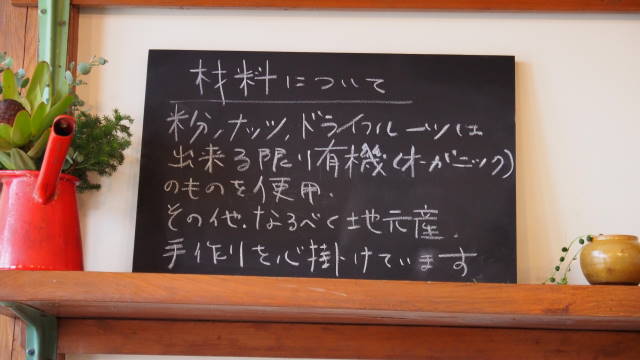 材料について
粉,ナッツ,ドライフルーツは
出来る限り有機(オーガニック)
のものを使用.
その他.なるべく地元産.
手作りを心掛けています